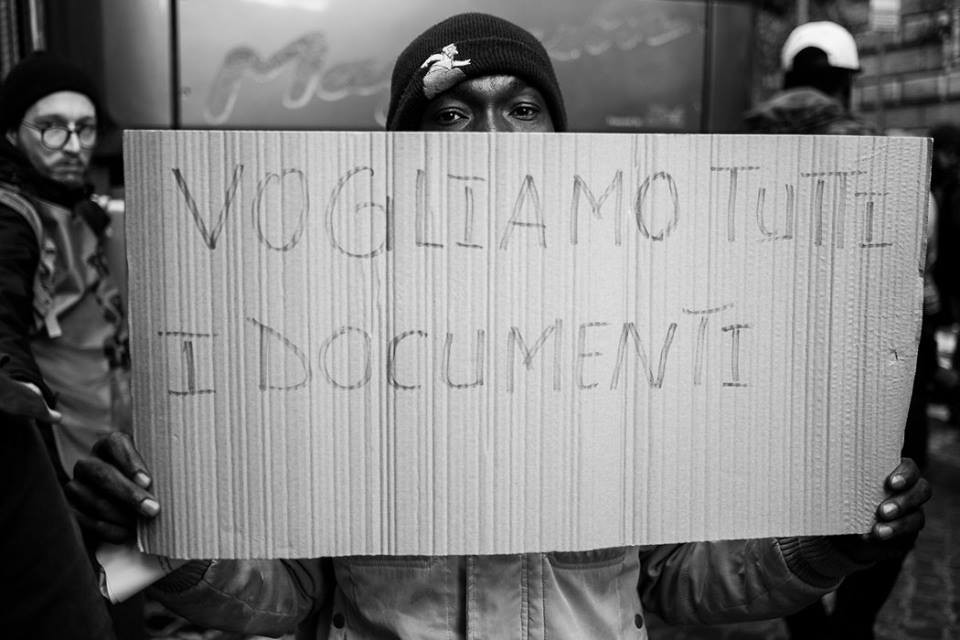 VOGLIAMO TUTTI
I DOCUMENTI